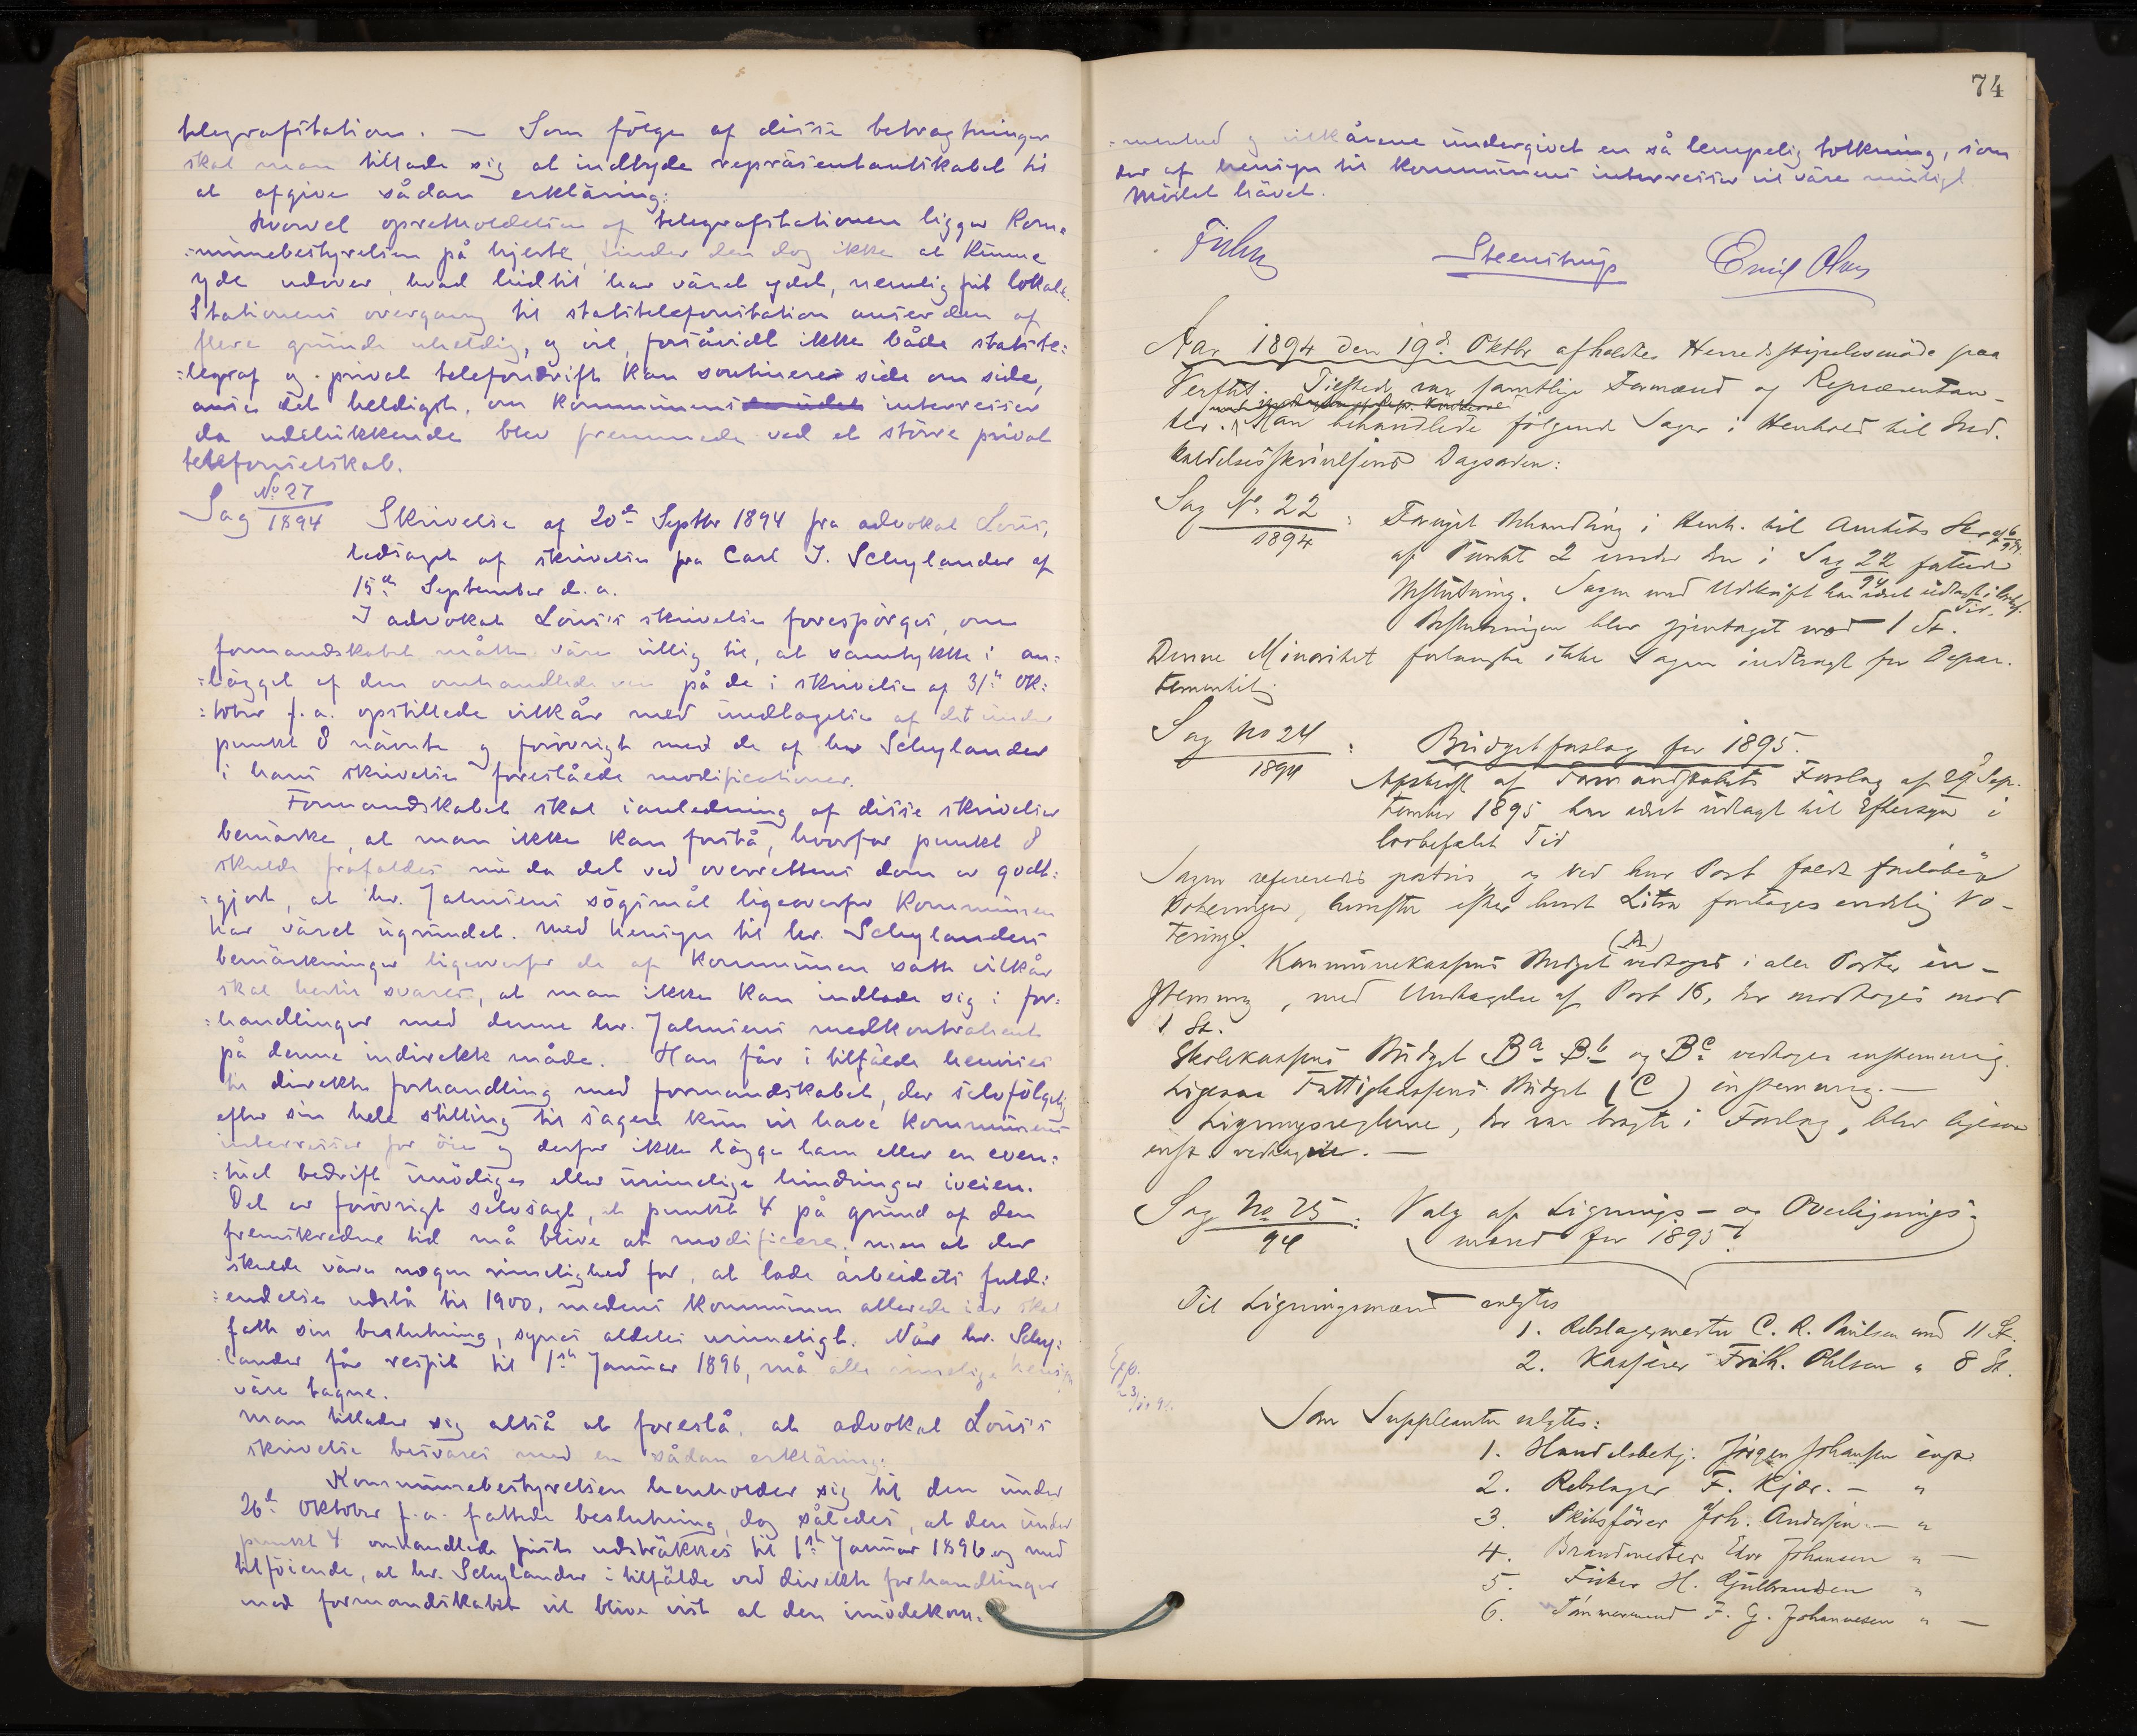 telegrafstation. — Som følge af disse betragtninger
skal man tillade sig at indbyde repräsentantskabet til
at afgive sådan erkläring:
Hvorvel opretholdelsen af telegrafstationen ligger kom-
:munebestyrelsen på hjerte, finder den dog ikke at kunne
yde udover, hvad hidtil har väret ydet, nemlig frit lokale.
Stationens overgang til statstelefonstation anser den af
flere grunde uheldig, og vil, forsåvidt ikke både statste:
:legraf og privat telefondrift kan kontinuere side om side,
anse det heldigst, om kommunens interesser
da udelukkende blev fremmede ved et større privat
telefonselskab.
Sag No 27
1894
Skrivelse af 20de Septbr 1894 fra advokat Lous,
ledsaget af skrivelse fra Carl J. Schylander af
15de September d. a.
I advokat Lous's skrivelse forespørges, om
formandskabet måtte väre villig til, at samtykke i an:
:lägget af den omhandlede vei på de i skrivelse af 31te Ok:
:tober f. a. opstillede vilkår med undtagelse af det under
punkt 8 nävnte og forøvrigt med de af hr Schylander
i hans skrivelse foreslåede modificationer.
Formandskabet skal i anledning af disse skrivelser
bemärke, at man ikke kan forstå, hvorfor punkt 8
skulde frafaldes nu da det ved overrettens dom er godt:
:gjort, at hr. Jahnsens søgsmål ligeoverfor kommunen
har väret ugrundet. Med hensyn til hr. Schylanders
bemärkninger ligeoverfor de af kommunen satte vilkår
skal hertil svares, at man ikke kan indlade sig i for:
:handlinger med denne hr. Jahnsens medkontrahent
på denne indirekte måde. Han får i tilfälde henvises
til direkte forhandling med formandskabet, der selvfølgelig
efter sin hele stilling til sagen kun vil have kommunens
interesser for øie og derfor ikke lägge ham eller en even:
:tuel bedrift unødige eller urimelige hindringer iveien.
Det er forøvrigt selvsagt, at punkt 4 på grund af den
fremskredne tid må blive at modificere; men at der
skulde väre nogen rimelighed for, at lade arbeidets fuld:
:endelse udstå til 1900, medens kommunen allerede iår skal
fatte sin beslutning, synes aldeles urimeligt. Når hr. Schy:
:lander får respit til 1ste Januar 1896, må alle rimelige hensyn
väre tagne.
Man tillader sig altså at foreslå, at advokat Lous's
skrivelse besvares med en sådan erkläring:
Kommunebestyrelsen henholder sig til den under
26de Oktober f. a. fattede beslutning, dog således, at den under
punkt 4 omhandlede frist udsträkkes til 1ste Januar 1896 og med
tilføiende, at hr. Schylander i tilfälde ved direkte forhandlinger
med formandskabet vil blive vist al den imødekom:
74
:menhed og vilkårene undergivet en så lempelig tolkning, som
der af hensyn til kommunens interesser vil väre muligt
Mødet hävet.
Steenstrup Emil Olsen
Aar 1894 den 19de Oktbr afholdtes Herredsstyrelsesmøde paa
Verftet. Tilstede var samtlige Formænd og Repræsentan-
ter. Man behandlede følgende Sager i Henhold til Ind-
kaldelsesskrivelsens Dagsorden:
Sag No 22
1894 :
Fornyet Behandling i Henh. til Amtets Skr. af 6/9 94.
af Punkt 2 under den i Sag 22/94 fattede
Beslutning. Sagen med Udskrift har været udlagt i lovbef. Tid.
Beslutningen blev gjentaget mod 1 St.
Denne Minoritet forlangte ikke Sagen indbragt for Depar-
tementet.
Sag No 24
1894 :
Budgetforslag for 1895.
Afskrift af Formandskabets Forslag af 29 Sep-
tember 1895 har været udlagt til Eftersyn i
lovbefalet Tid
Sagen refereredes postvis og ved hver Post foldt foreløbig
Voteringer, hvorefter efter hvert Litra foretoges endelig Vo-
tering.
Kommunekassens Budget (A) vedtoges i alle Poster en-
stemmig, med Undtagelse af Post 16, der modtoges mod
1 St.
Skolekassens Budget Ba Bb og Bc vedtoges enstemmig.
Ligesaa Fattigkassens Budget (C) enstemmig. —
Ligningsreglerne, der var bragte i Forslag, blev ligesaa
enst. vedtagne. —
Sag No 25
94 :
Valg af Lignings- og Overlignings-
mænd for 1895.
Til Ligningsmænd valgtes
1. Rebslagermester C. R. Paulsen med 11 St.
2. Kasserer Frith. Ohlsen " 8 St.
Exp.
Som Suppleanter valgtes:
1. Handelsbetj. Jørgen Johansen enst.
2. Rebslager F. Kjær. — "
3. Skibsfører Joh. Andersen — "
4. Brandmester Edv Johansen " —
5. Fisker H. Gulbrandsen "
6. Tømmermand F. G. Johannesen " —